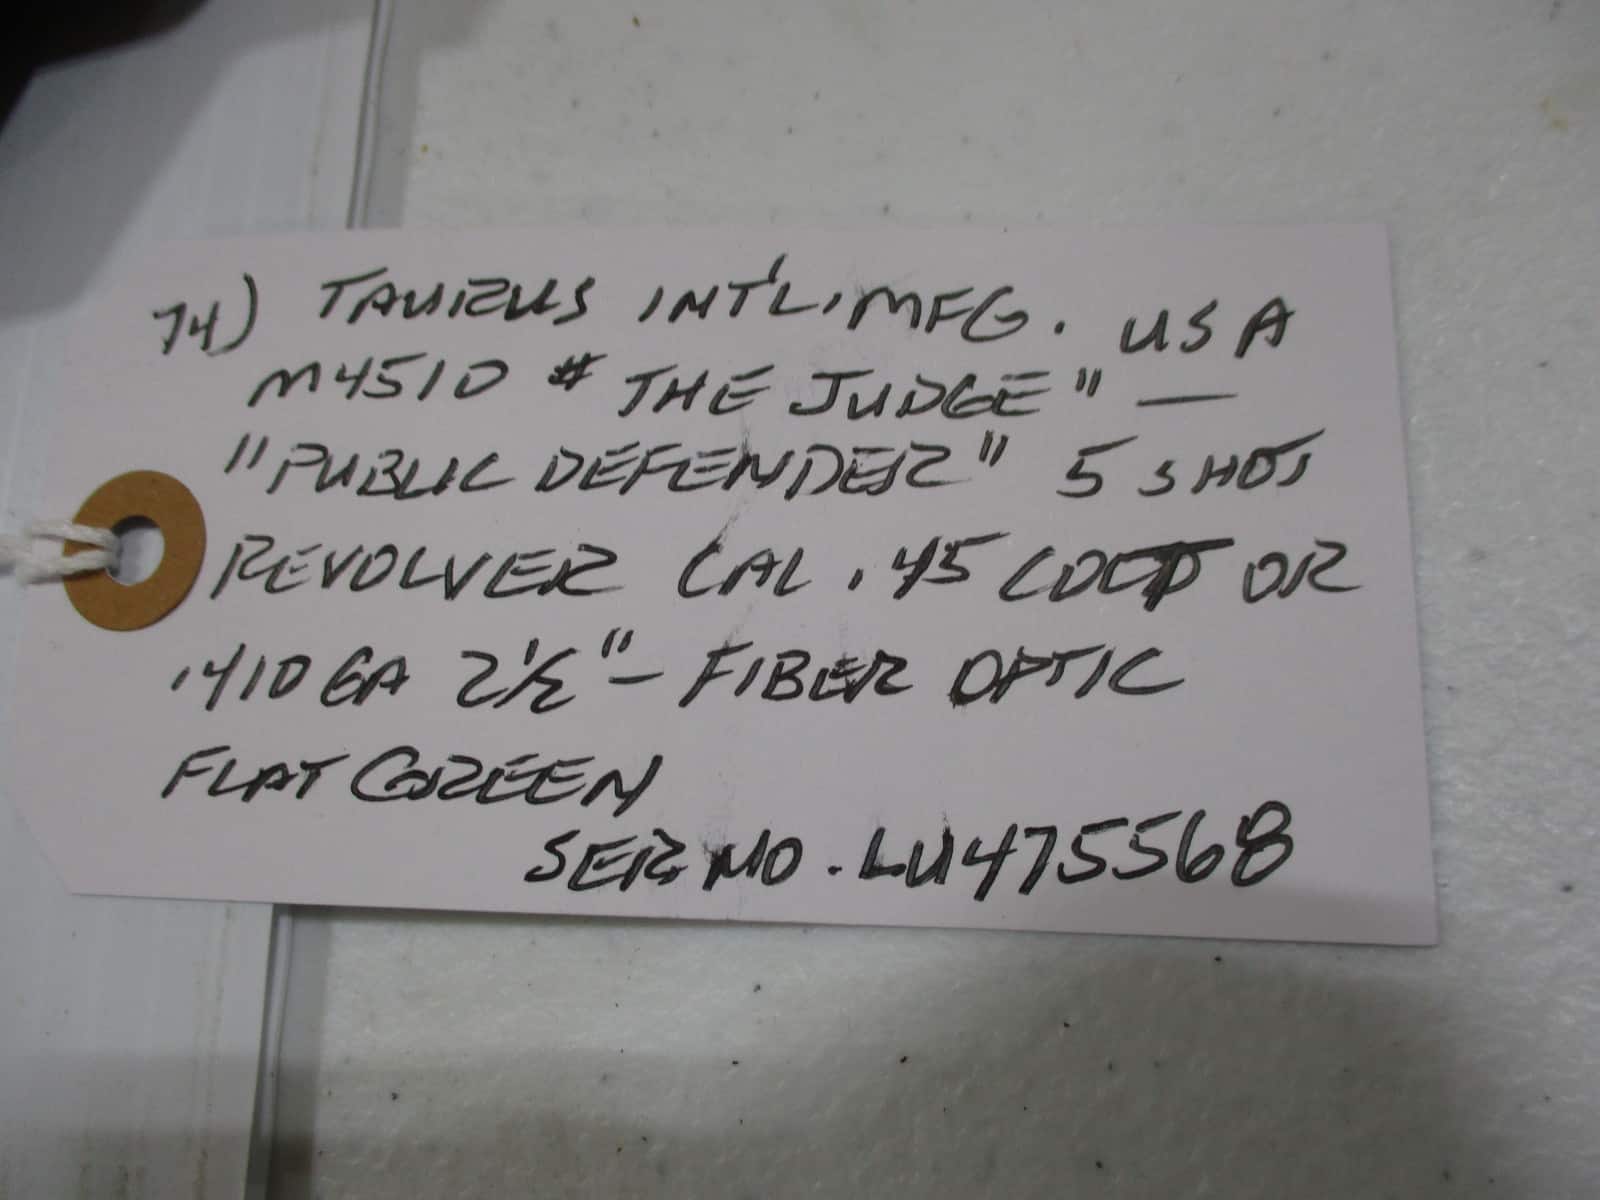 74) TAURUS INT'L. MFG. USA
M4510 " THE JUDGE" —
"PUBLIC DEFENDER" 5 SHOT
REVOLVER CAL .45 COLT OR
.410 GA 2½" - FIBER OPTIC
FLAT GREEN
SER NO. LU475568